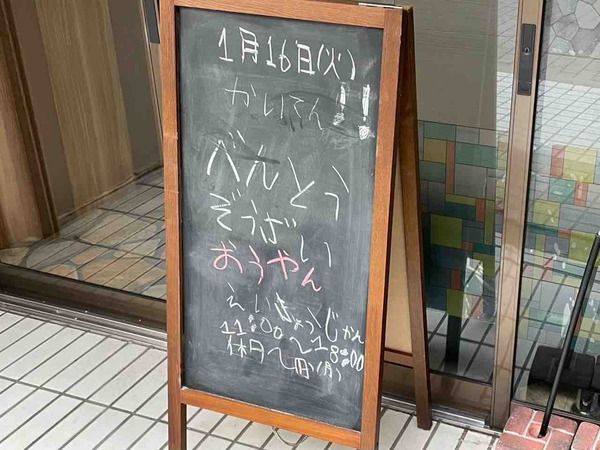 1月16日(火)
かいてん!!
べんとう
ぞうざい
おうやん
えいぎょうじかん
11:00〜18:00
休日〜日(月)